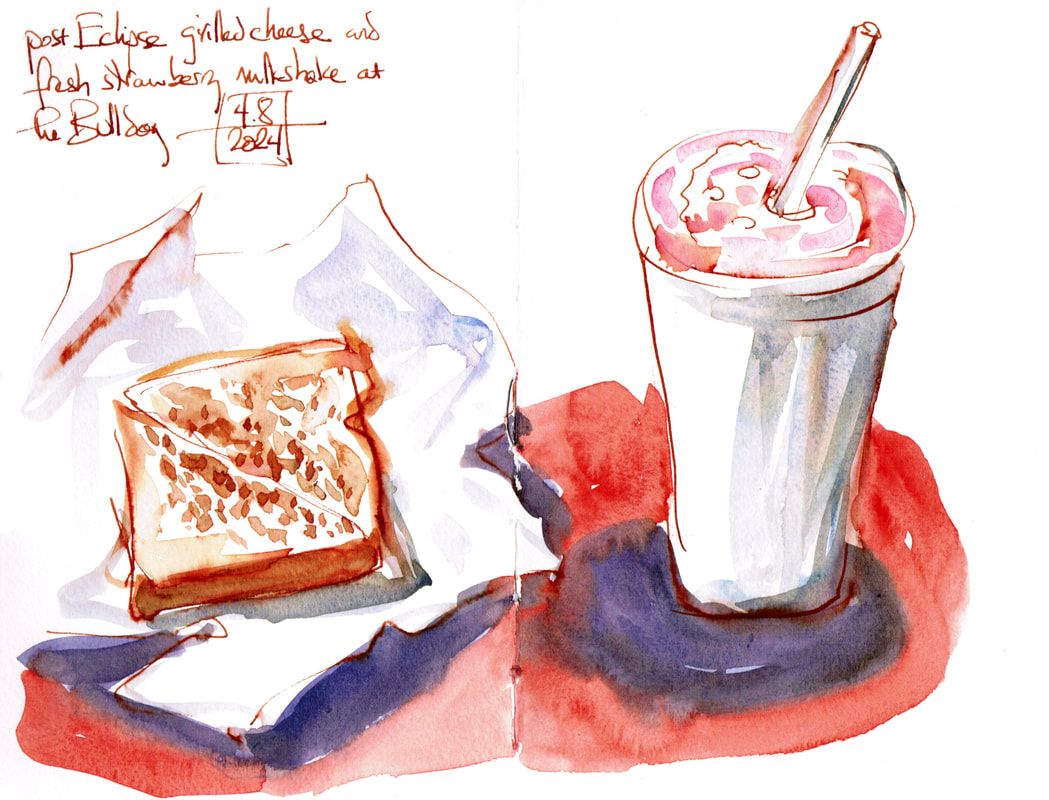 post Eclipse grilled cheese and
fresh strawberry milkshake at
the Bulldog
4.8
2024